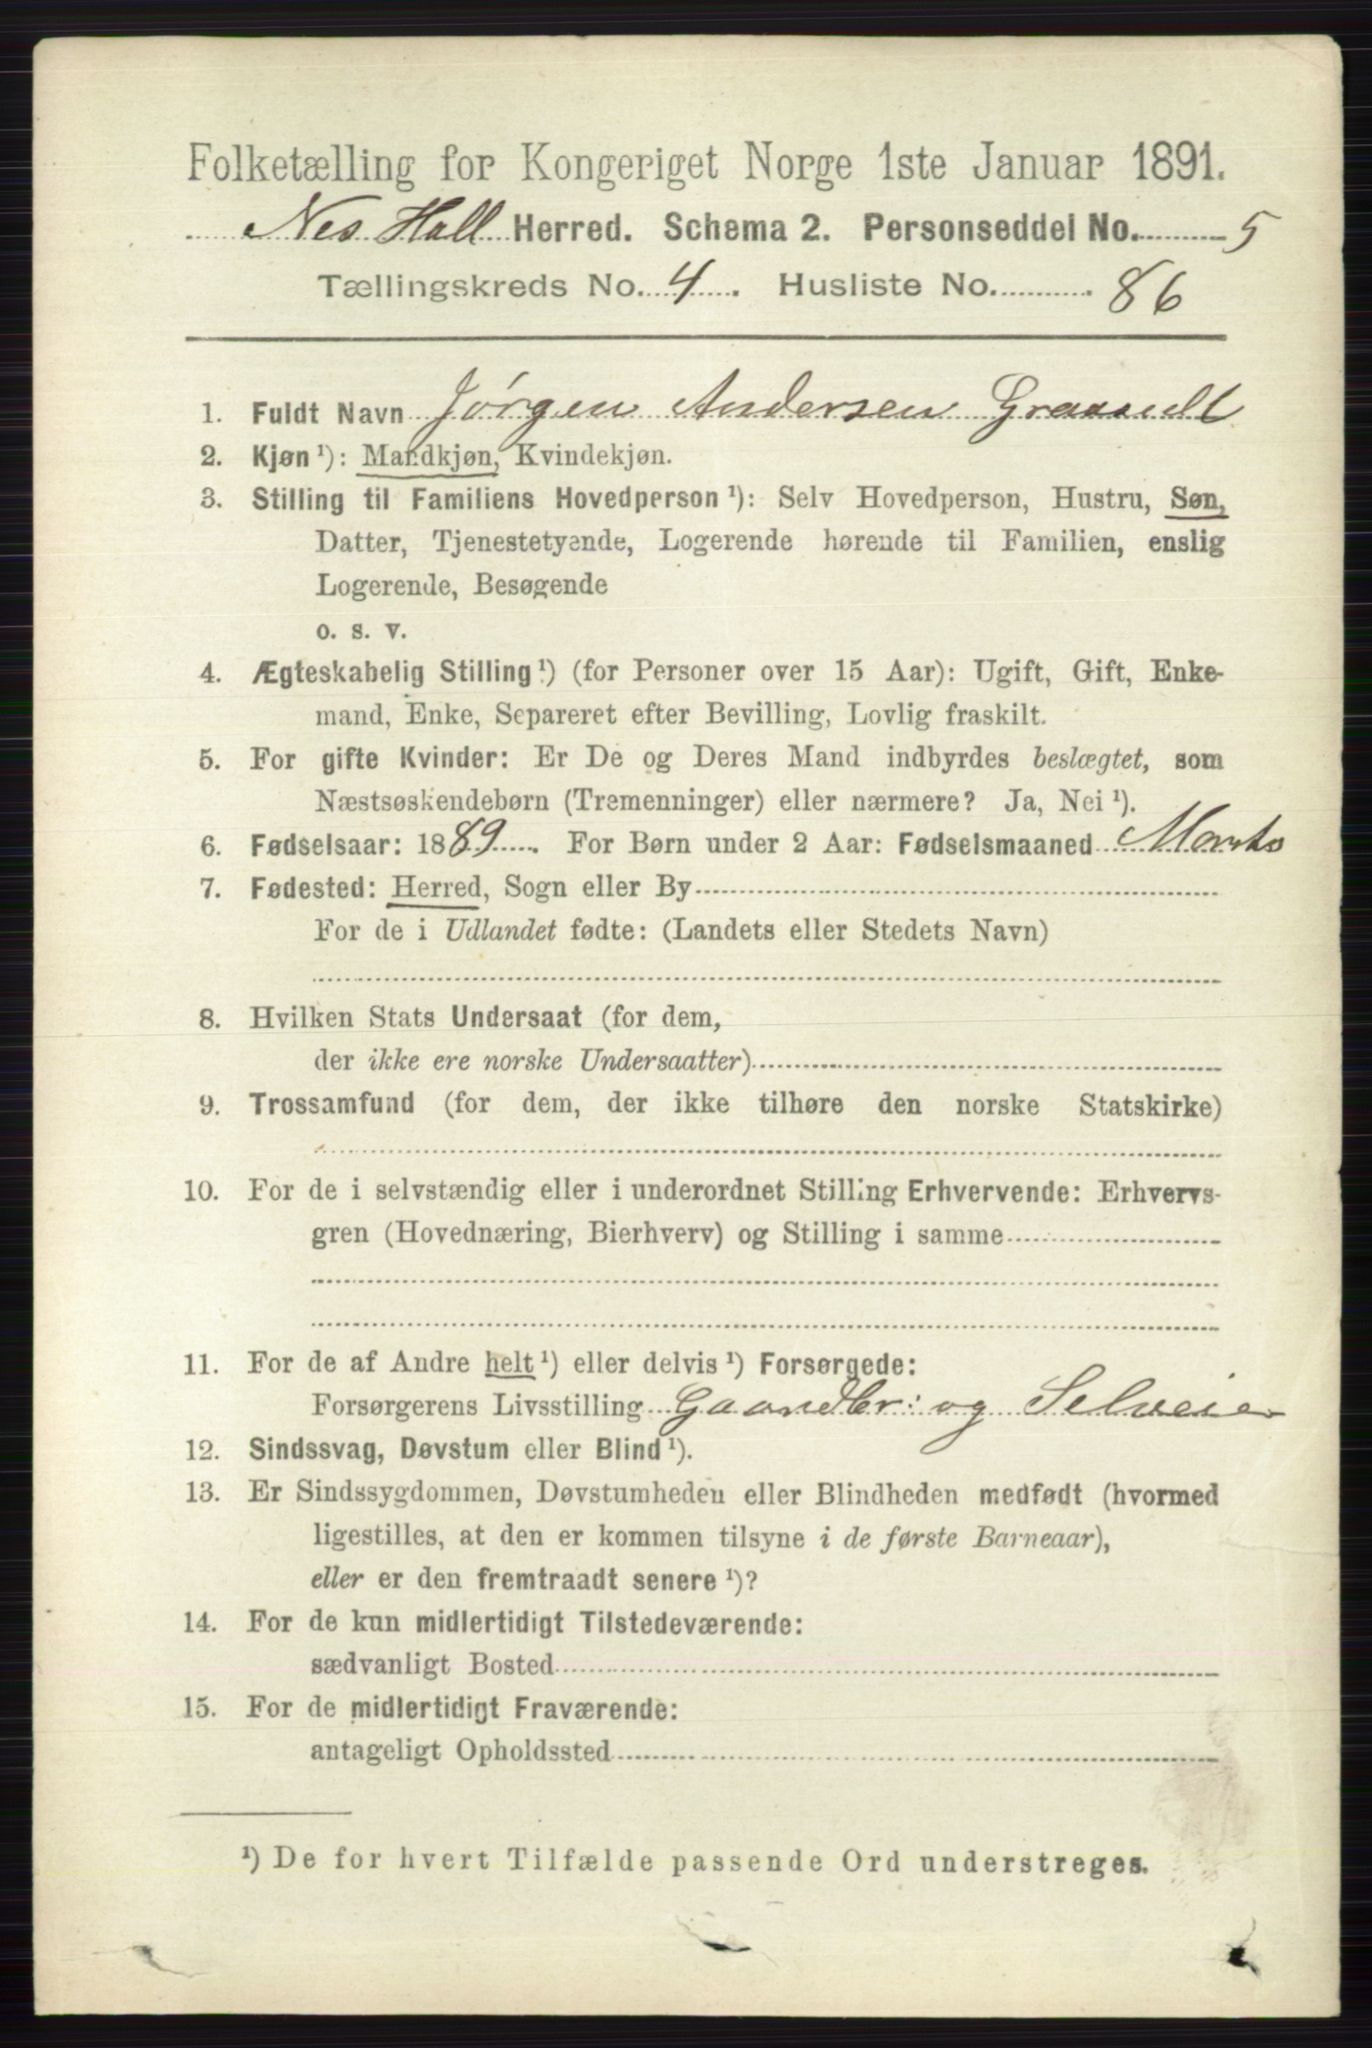 Folketælling for Kongeriget Norge 1ste Januar 1891.
Nes Hall Herred. Schema 2. Personseddel No. 5
Tællingskreds No. 4. Husliste No. 86
1. Fuldt Navn Jørgen Andersen
2. Kjøn ¹): Mandkjøn, Kvindekjøn.
3. Stilling til Familiens Hovedperson ¹): Selv Hovedperson, Hustru, Søn,
Datter, Tjenestetyende, Logerende hørende til Familien, enslig
Logerende, Besøgende
o. s. v.
4. Ægteskabelig Stilling ¹) (for Personer over 15 Aar): Ugift, Gift, Enke-
mand, Enke, Separeret efter Bevilling, Lovlig fraskilt.
5. For gifte Kvinder: Er De og Deres Mand indbyrdes beslægtet, som
Næstsøskendebørn (Tremenninger) eller nærmere? Ja, Nei ¹).
6. Fødselsaar: 1889. For Børn under 2 Aar: Fødselsmaaned Marts
7. Fødested: Herred, Sogn eller By
For de i Udlandet fødte: (Landets eller Stedets Navn)
8. Hvilken Stats Undersaat (for dem,
der ikke ere norske Undersaatter)
9. Trossamfund (for dem, der ikke tilhøre den norske Statskirke)
10. For de i selvstændig eller i underordnet Stilling Erhvervende: Erhvervs-
gren (Hovednæring, Bierhverv) og Stilling i samme
11. For de af Andre helt ¹) eller delvis ¹) Forsørgede:
Forsørgerens Livsstilling Gaardbr: og Selveier
12. Sindssvag, Døvstum eller Blind ¹).
13. Er Sindssygdommen, Døvstumheden eller Blindheden medfødt (hvormed
ligestilles, at den er kommen tilsyne i de første Barneaar),
eller er den fremtraadt senere ¹)?
14. For de kun midlertidigt Tilstedeværende:
sædvanligt Bosted
15. For de midlertidigt Fraværende:
antageligt Opholdssted
¹) De for hvert Tilfælde passende Ord understreges.